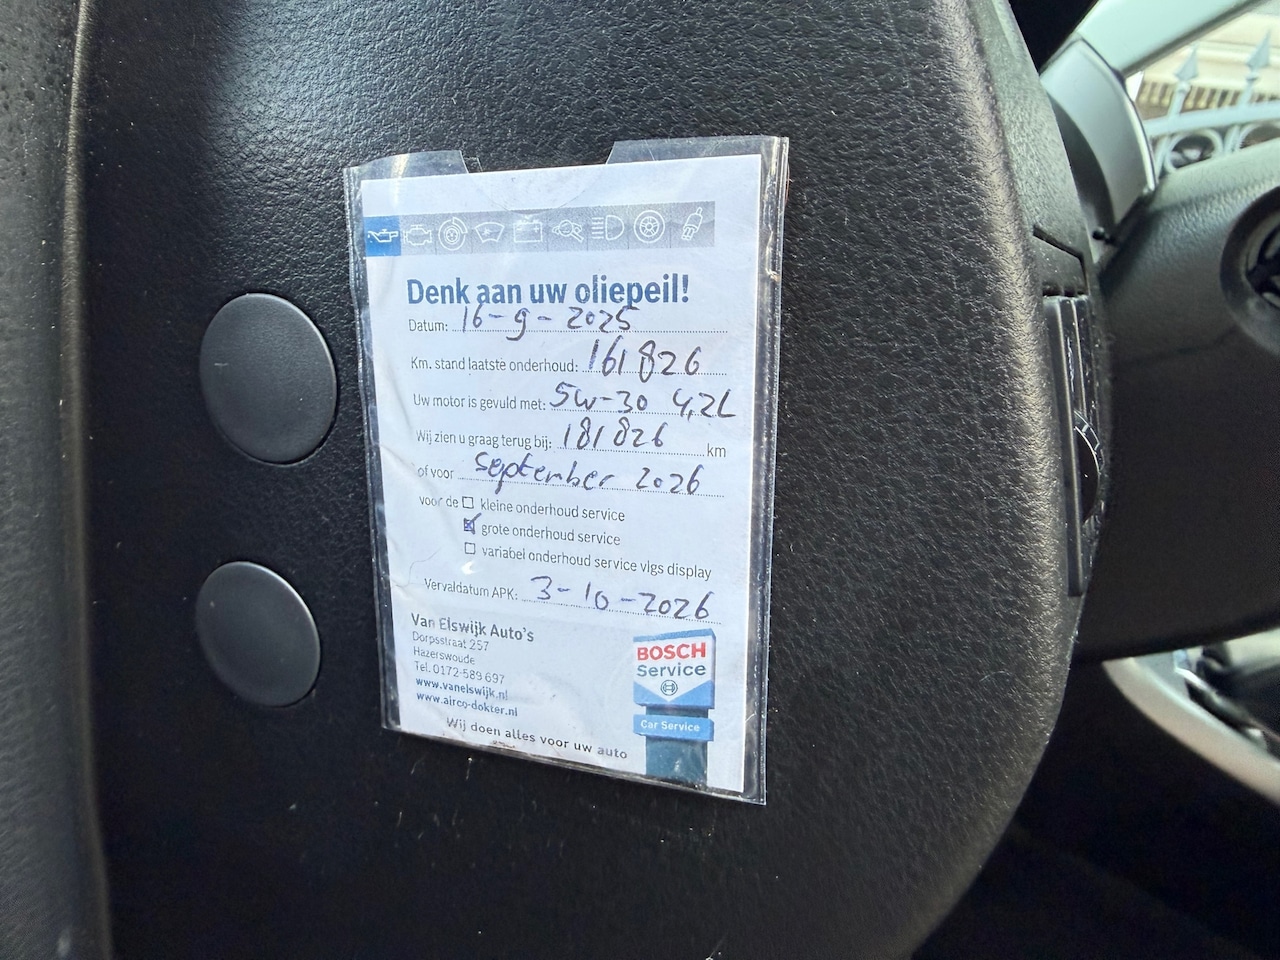 Denk aan uw oliepeil!
Datum: 16-9-2025
Km. stand laatste onderhoud: 161826
Uw motor is gevuld met: 5W-30 4,2L
Wij zien u graag terug bij: 181826 km
of voor september 2026
voor de kleine onderhoud service
grote onderhoud service
variabel onderhoud service vlgs display
Vervaldatum APK: 3-10-2026
Van Elswijk Auto's
Dorpsstraat 257
Hazerswoude
Tel. 0172-589 697
www.vanelswijk.nl
www.airco-dokter.nl
Wij doen alles voor uw auto
BOSCH
Service
Car Service